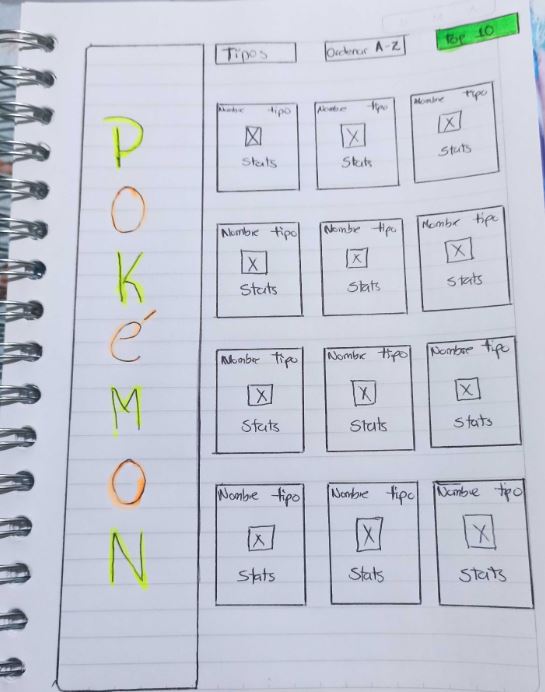 Tipos
Ordenar A-Z
Top 10
P
O
K
é
M
O
N
Nombre tipo
Stats
Nombre tipo
Stats
Nombre tipo
Stats
Nombre tipo
Stats
Nombre tipo
Stats
Nombre tipo
Stats
Nombre tipo
Stats
Nombre tipo
Stats
Nombre tipo
Stats
Nombre tipo
Stats
Nombre tipo
Stats
Nombre tipo
Stats